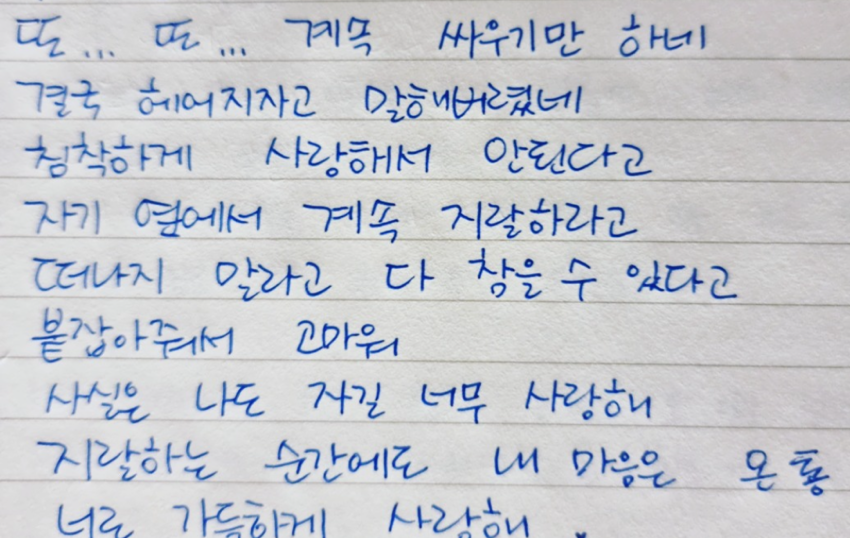 또... 또... 계속 싸우기만 하네
결국 헤어지자고 말해버렸네
침착하게 사랑해서 안된다고
자기 옆에서 계속 지랄하라고
떠나지 말라고 다 참을 수 있다고
붙잡아줘서 고마워
사실은 나도 자길 너무 사랑해
지랄하는 순간에도 내 마음은 온통
너로 가득하게 사랑해.